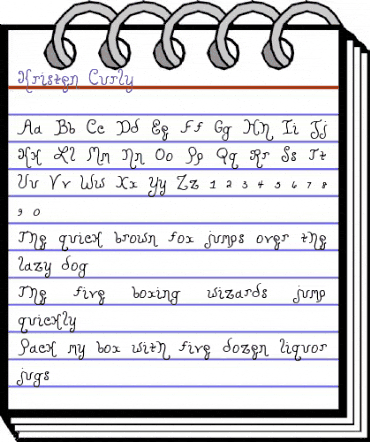 Kristen Curly
Aa Bb Cc Dd Ee Ff Gg Hh Ii Jj
Kk Ll Mm Nn Oo Pp Qq Rr Ss Tt
Uu Vv Ww Xx Yy Zz 1 2 3 4 5 6 7 8
9 0
The quick brown fox jumps over the
lazy dog
The five boxing wizards jump
quickly
Pack my box with five dozen liquor
jugs